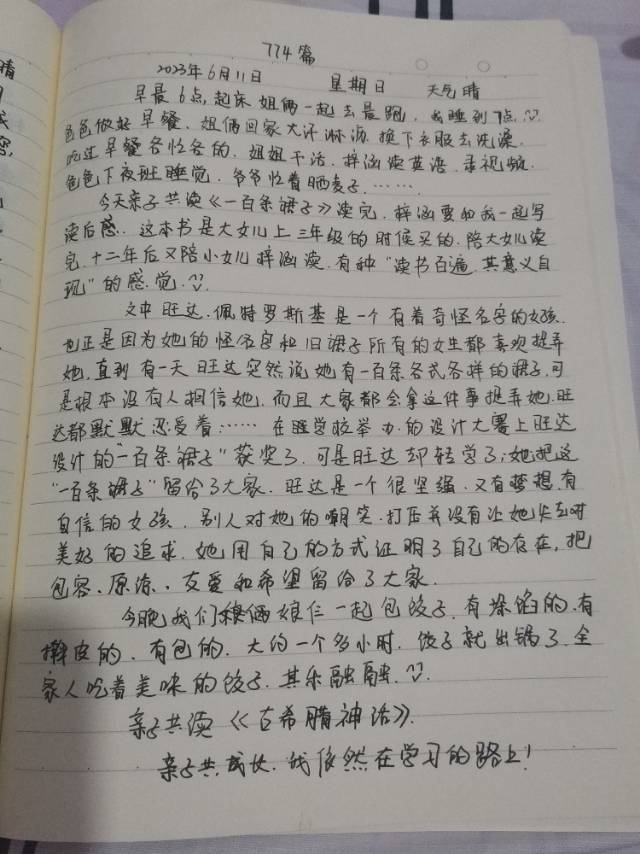 774篇
2023年6月11日 星期日 天气晴
早晨6点,起床姐俩一起去晨跑,我睡到7点,
爸爸做好早餐,姐俩回家大汗淋漓,换下衣服去洗澡,
吃过早餐各忙各的,姐姐干活,梓涵读英语,录视频,
爸爸下夜班睡觉,爷爷忙着晒麦子,……
今天亲子共读《一百条裙子》读完,梓涵要和我一起写
读后感,这本书是大女儿上三年级的时候买的,陪大女儿读
完,十二年后又陪小女儿梓涵读,有种"读书百遍,其意义自
现"的感觉,
文中旺达·佩特罗斯基是一个有着奇怪名字的女孩,
也正是因为她的怪名字和旧裙子所有的女生都喜欢捉弄
她,直到有一天旺达突然说她有一百条各式各样的裙子,可
是根本没有人相信她,而且大家都会拿这件事捉弄她,旺
达都默默忍受着……在学校举办的设计大赛上旺达
设计的"一百条裙子"获奖了,可是旺达却转学了,她把这
"一百条裙子"留给了大家,旺达是一个很坚强,又有梦想,有
自信的女孩,别人对她的嘲笑,打压并没有让她失去对
美好的追求,她用自己的方式证明了自己的存在,把
包容、原谅、友爱和希望留给了大家,
今晚我们娘仨一起包饺子,有馅的,有
擀皮的,有包的,大约一个多小时,饺子就出锅了,全
家人吃着美味的饺子,其乐融融,
亲子共读《古希腊神话》.
亲子共成长,我依然在学习的路上!